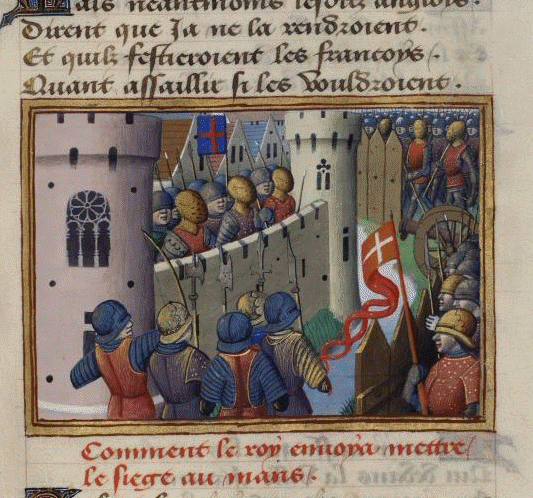 ais neantmoins lesditz anglois
Dirent que Ja ne la rendroient.
Et quilz festieroient les francoys.
Quant assaillir si les vouldroient.
Comment le roy envoya mettre
le siege au mans.